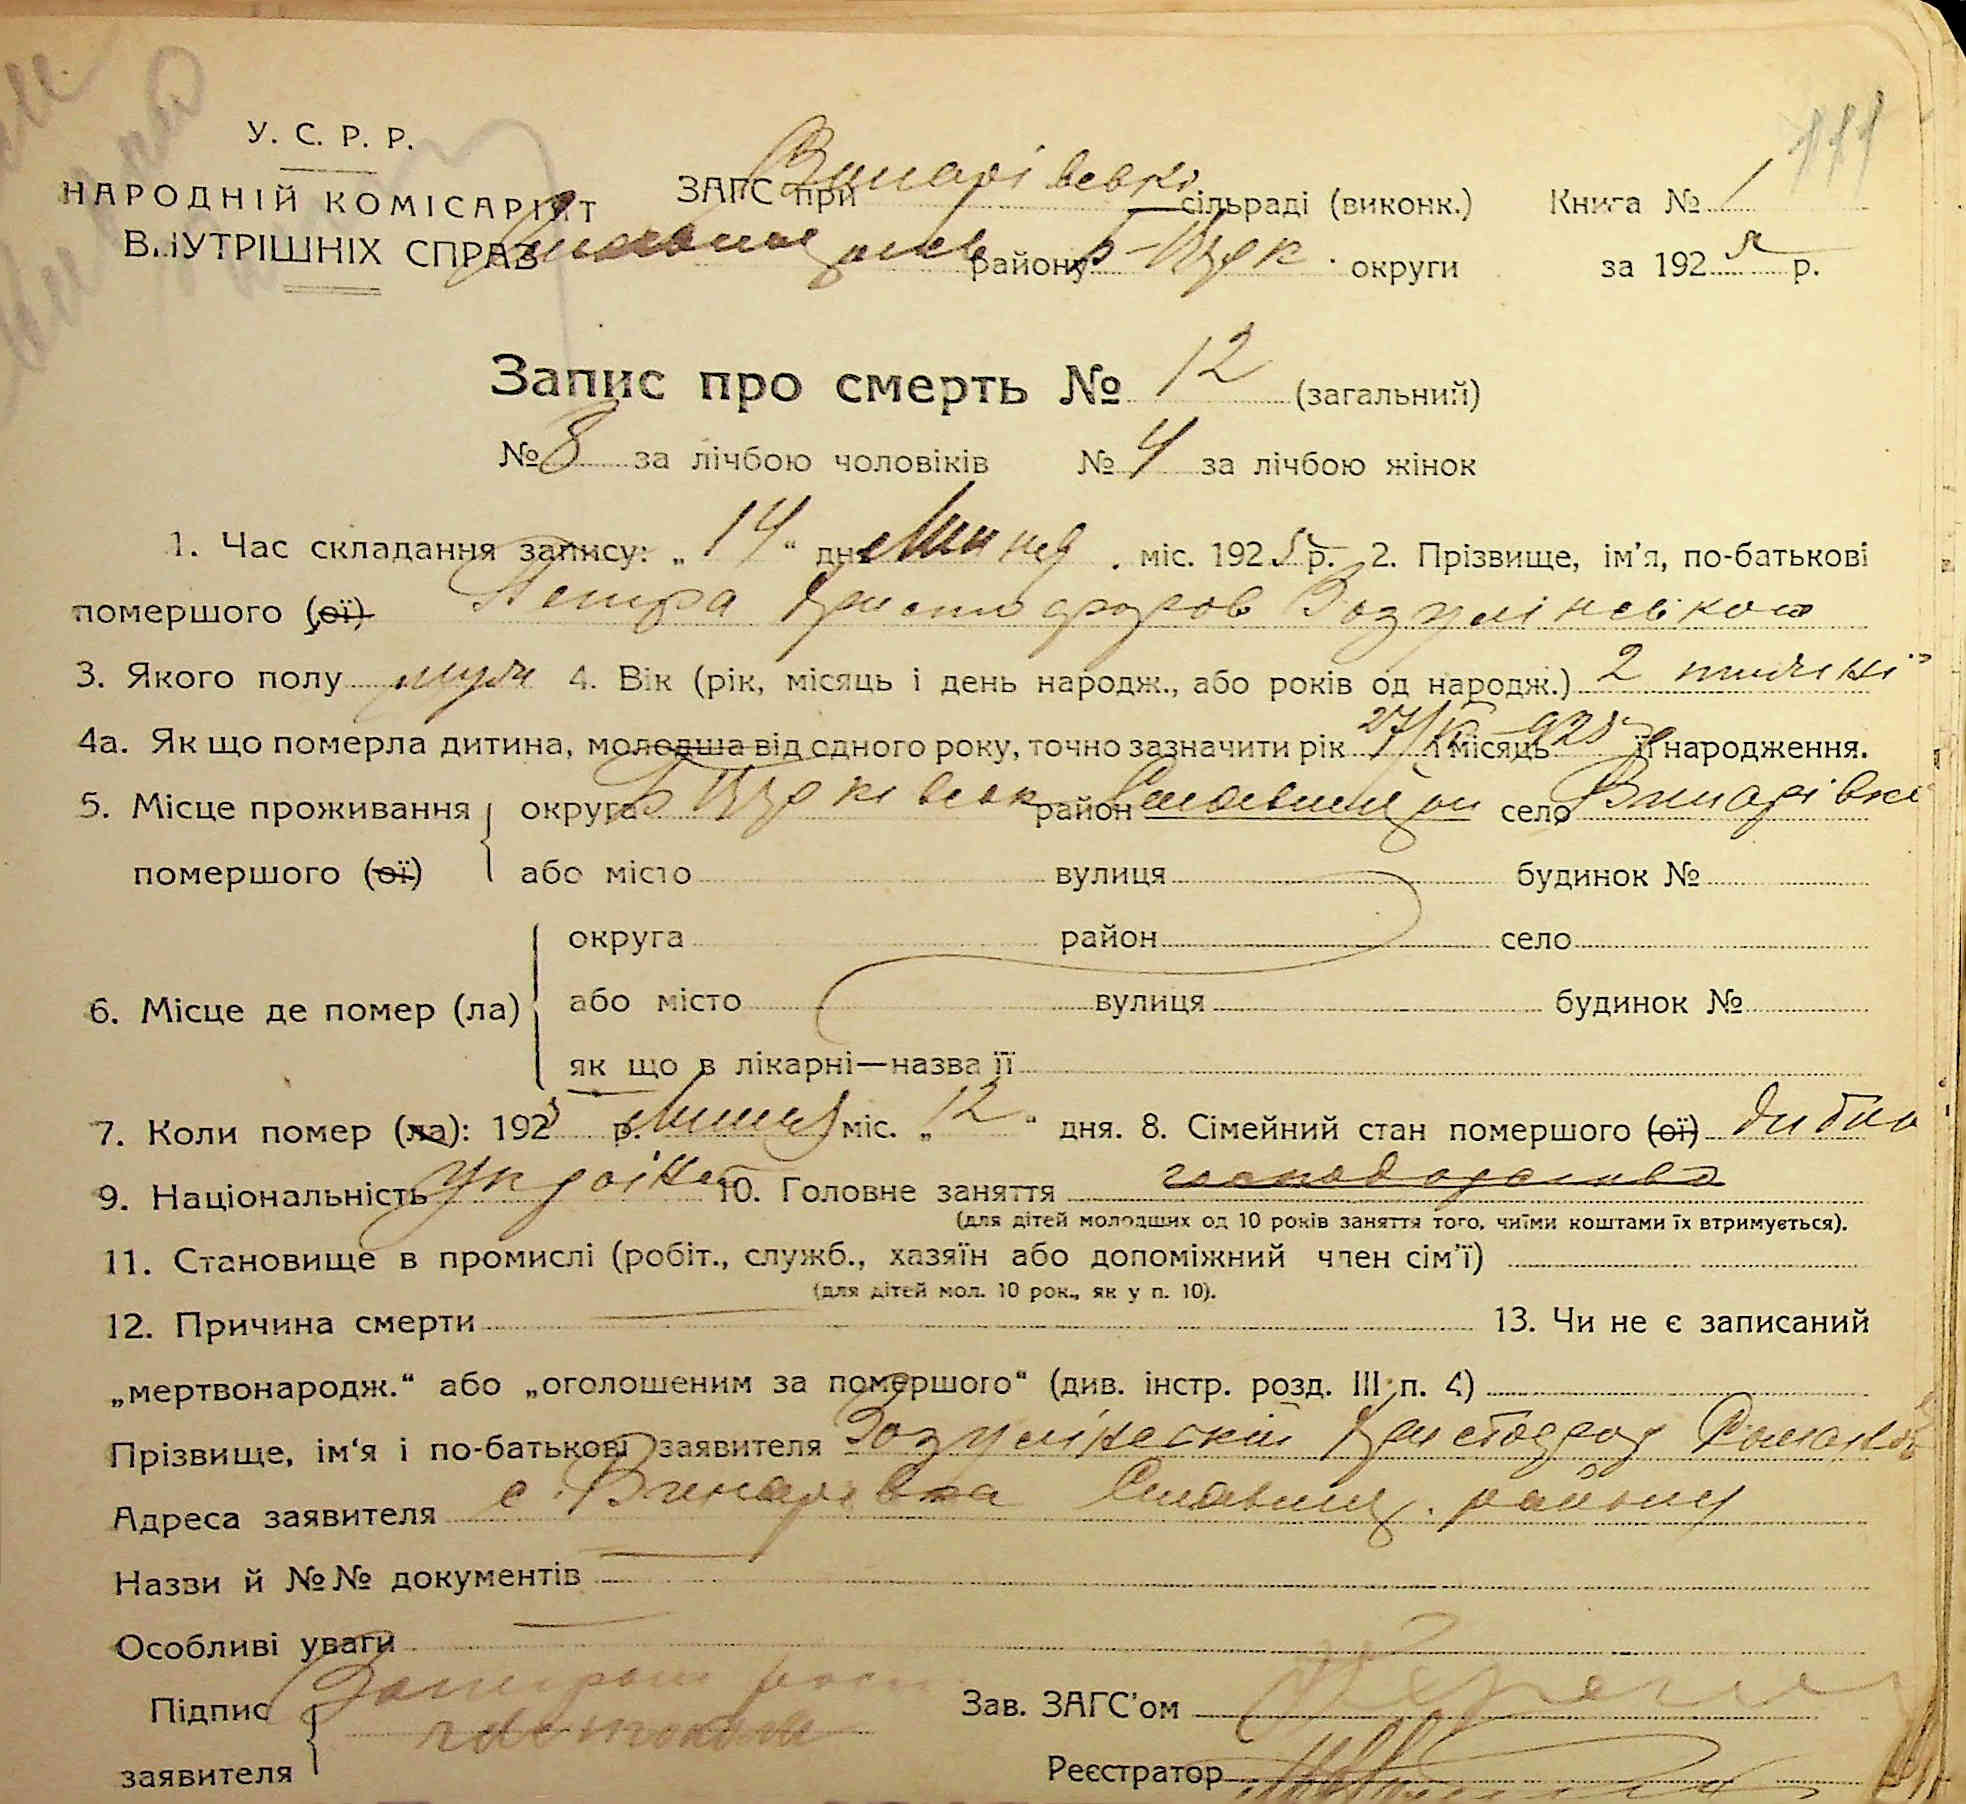 111
У. С. Р. Р.
НАРОДНІЙ КОМІСАРІЯТ
ВНУТРІШНІХ СПРАВ
ЗАГС при Винарівські сільраді (виконк.) Книга № 1
району Б-Церк. округи за 1925 р.
Запис про смерть № 12 (загальний)
№ 8 за лічбою чоловіків № 4 за лічбою жінок
1. Час складання запису: „14“ дня Липня міс. 1925 р. 2. Прізвище, ім'я, по-батькові
помершого (ої) Петра Христофоров Зозулінського
3. Якого полу муж 4. Вік (рік, місяць і день народж., або років од народж.) 2 тижні
4а. Як що померла дитина, молодша від одного року, точно зазначити рік 27/VI 925 і місяць її народження.
5. Місце проживання округа Б Церківськ район Ставищан село Винарівка
помершого (ої) або місто вулиця будинок №
округа район село
6. Місце де помер (ла) або місто вулиця будинок №
як що в лікарні—назва її
7. Коли помер (ла): 1925 р. Липня міс. „12“ дня. 8. Сімейний стан помершого (ої)
9. Національність Україн 10. Головне заняття
(для дітей молодших од 10 років заняття того, чиїми коштами їх втримується).
11. Становище в промислі (робіт., служб., хазяїн або допоміжний член сім'ї)
(для дітей мол. 10 рок., як у п. 10).
12. Причина смерти — 13. Чи не є записаний
„мертвонародж.“ або „оголошеним за помершого“ (див. інстр. розд. III п. 4)
Прізвище, ім'я і по-батькові заявителя Зозулінский Христофор Романов
Адреса заявителя с. Винаревка Ставищ. району
Назви й №№ документів —
Особливі уваги —
Підпис
заявителя
Зав. ЗАГС'ом
Реєстратор